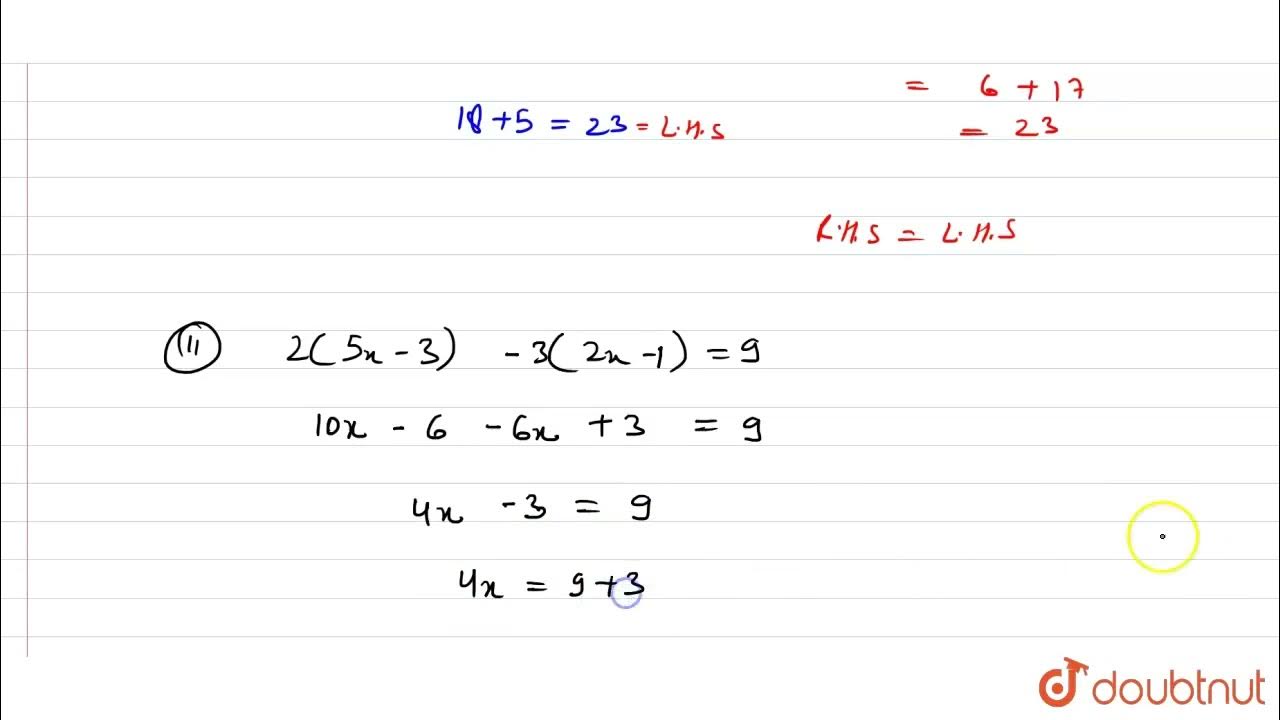 = 6 + 17
18 + 5 = 23 = L.H.S
= 23
R.H.S = L.H.S
(ii) 2(5x - 3) - 3(2x - 1) = 9
10x - 6 - 6x + 3 = 9
4x - 3 = 9
4x = 9 + 3
doubtnut